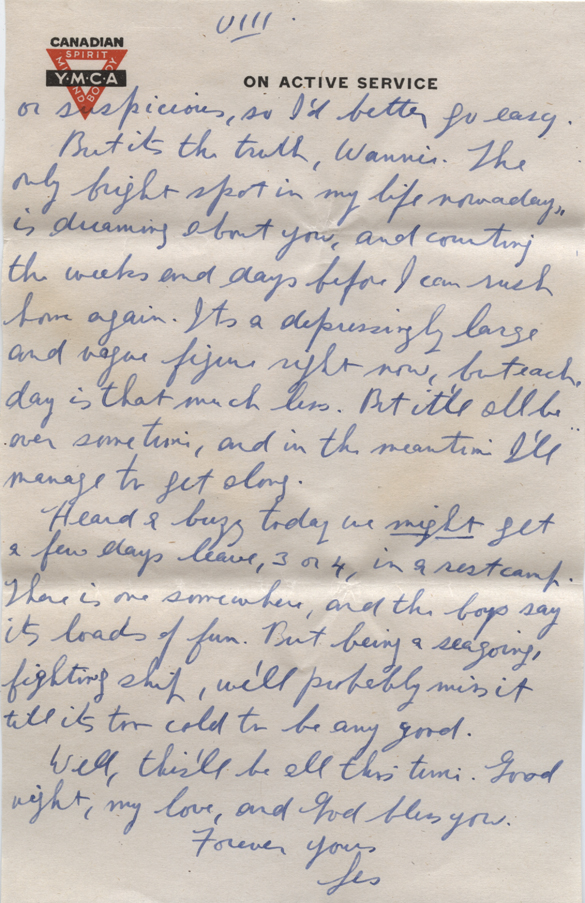 VIII.
CANADIAN
SPIRIT
MIND
BODY
Y·M·C·A
ON ACTIVE SERVICE
or suspicious, so I'd better go easy.
But its the truth, Wannie. The
only bright spot in my life nowadays,
is dreaming about you, and counting
the weeks and days before I can rush
home again. Its a depressingly large
and vague figure right now, but each
day is that much less. But it'll all be
over sometime, and in the meantime I'll
manage to get along.
Heard a buzz today we might get
a few days leave, 3 or 4, in a rest camp.
There is one somewhere, and the boys say
its loads of fun. But being a seagoing,
fighting ship, we'll probably miss it
till its too cold to be any good.
Well, this'll be all this time. Good
night, my love, and God bless you.
Forever yours
Les